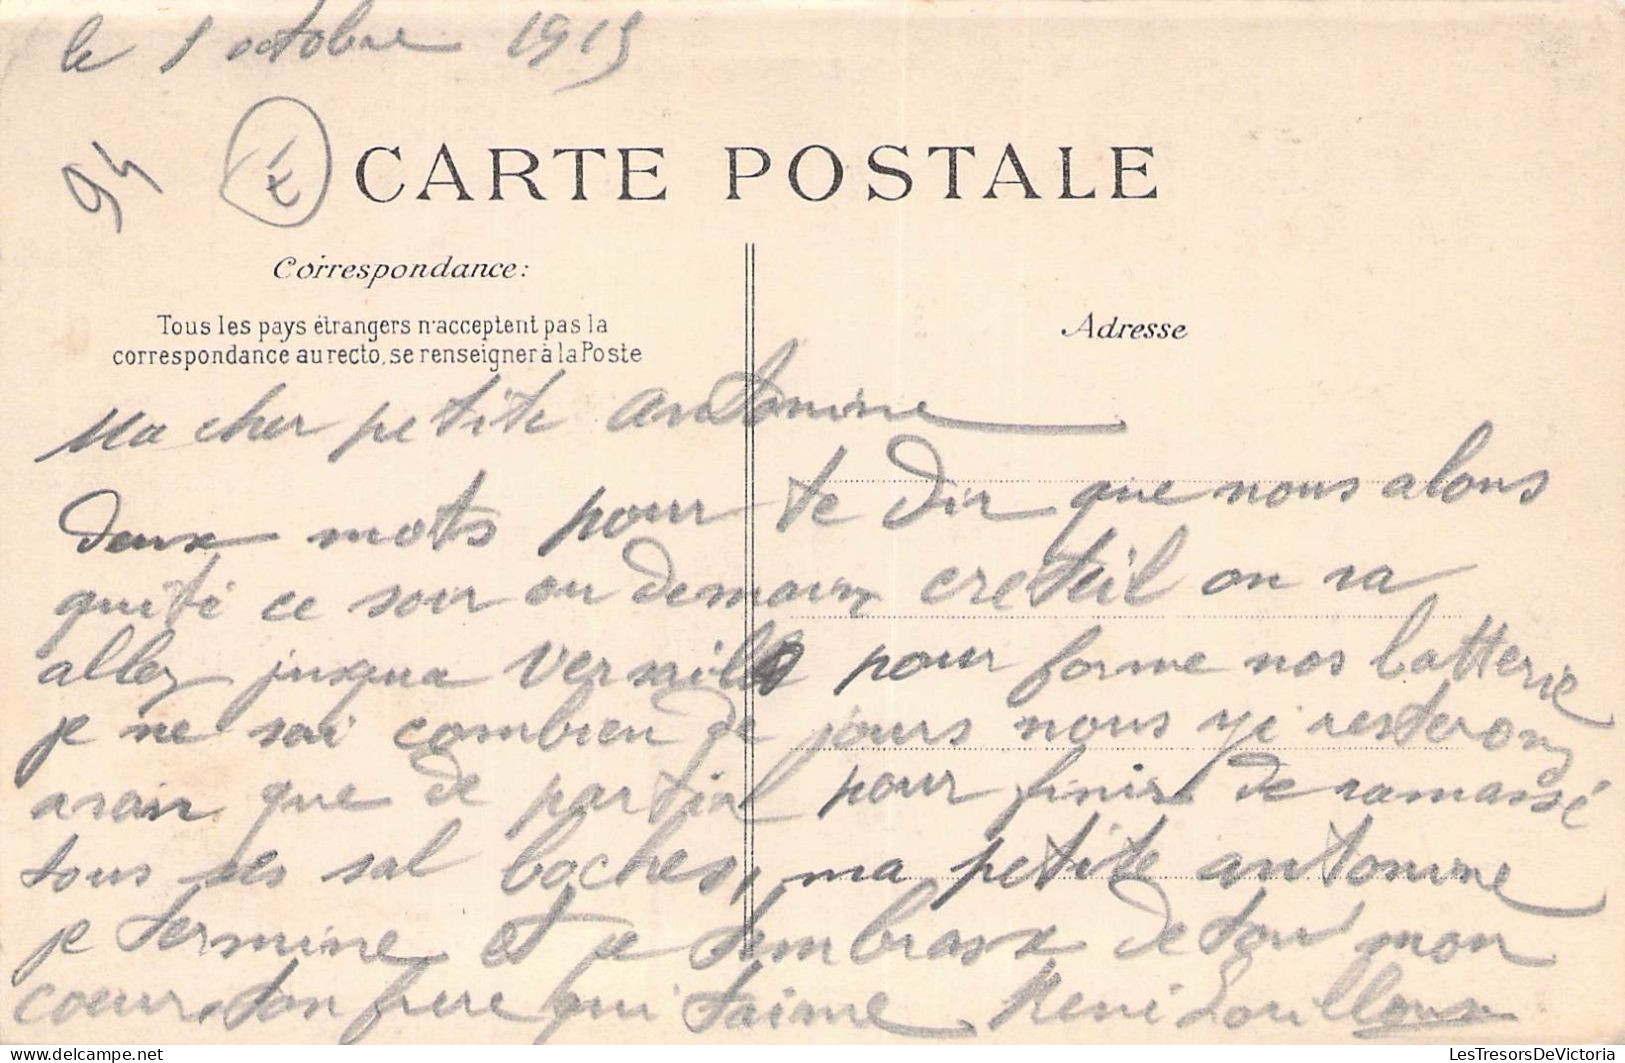 le 1 octobre 1915
94
É
CARTE POSTALE
Correspondance:
Tous les pays étrangers n'acceptent pas la
correspondance au recto, se renseigner à la Poste
Adresse
Ma cher petite antonine
deux mots pour te dir que nous alons
quité ce soir ou demain creteil on va
allez jusqua versaill pour forme nos batterie
je ne sai combien de jours nous yi resterons
avan que de partir pour finir de ramassé
tous ses sal boches, ma petite antonine
je termine et je tembrasse de tou mon
coeur, ton frere qui taime René
LesTresorsDeVictoria